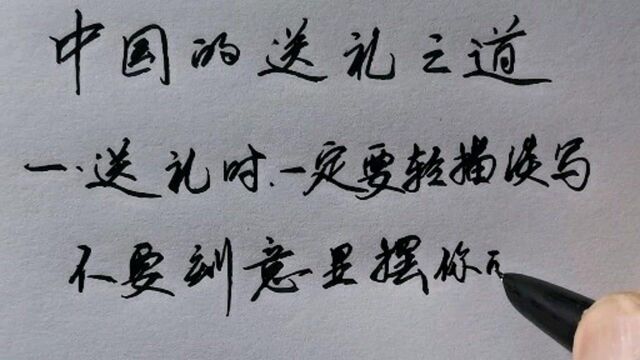 中国的送礼之道
一.送礼时、一定要轻描淡写
不要刻意显摆你